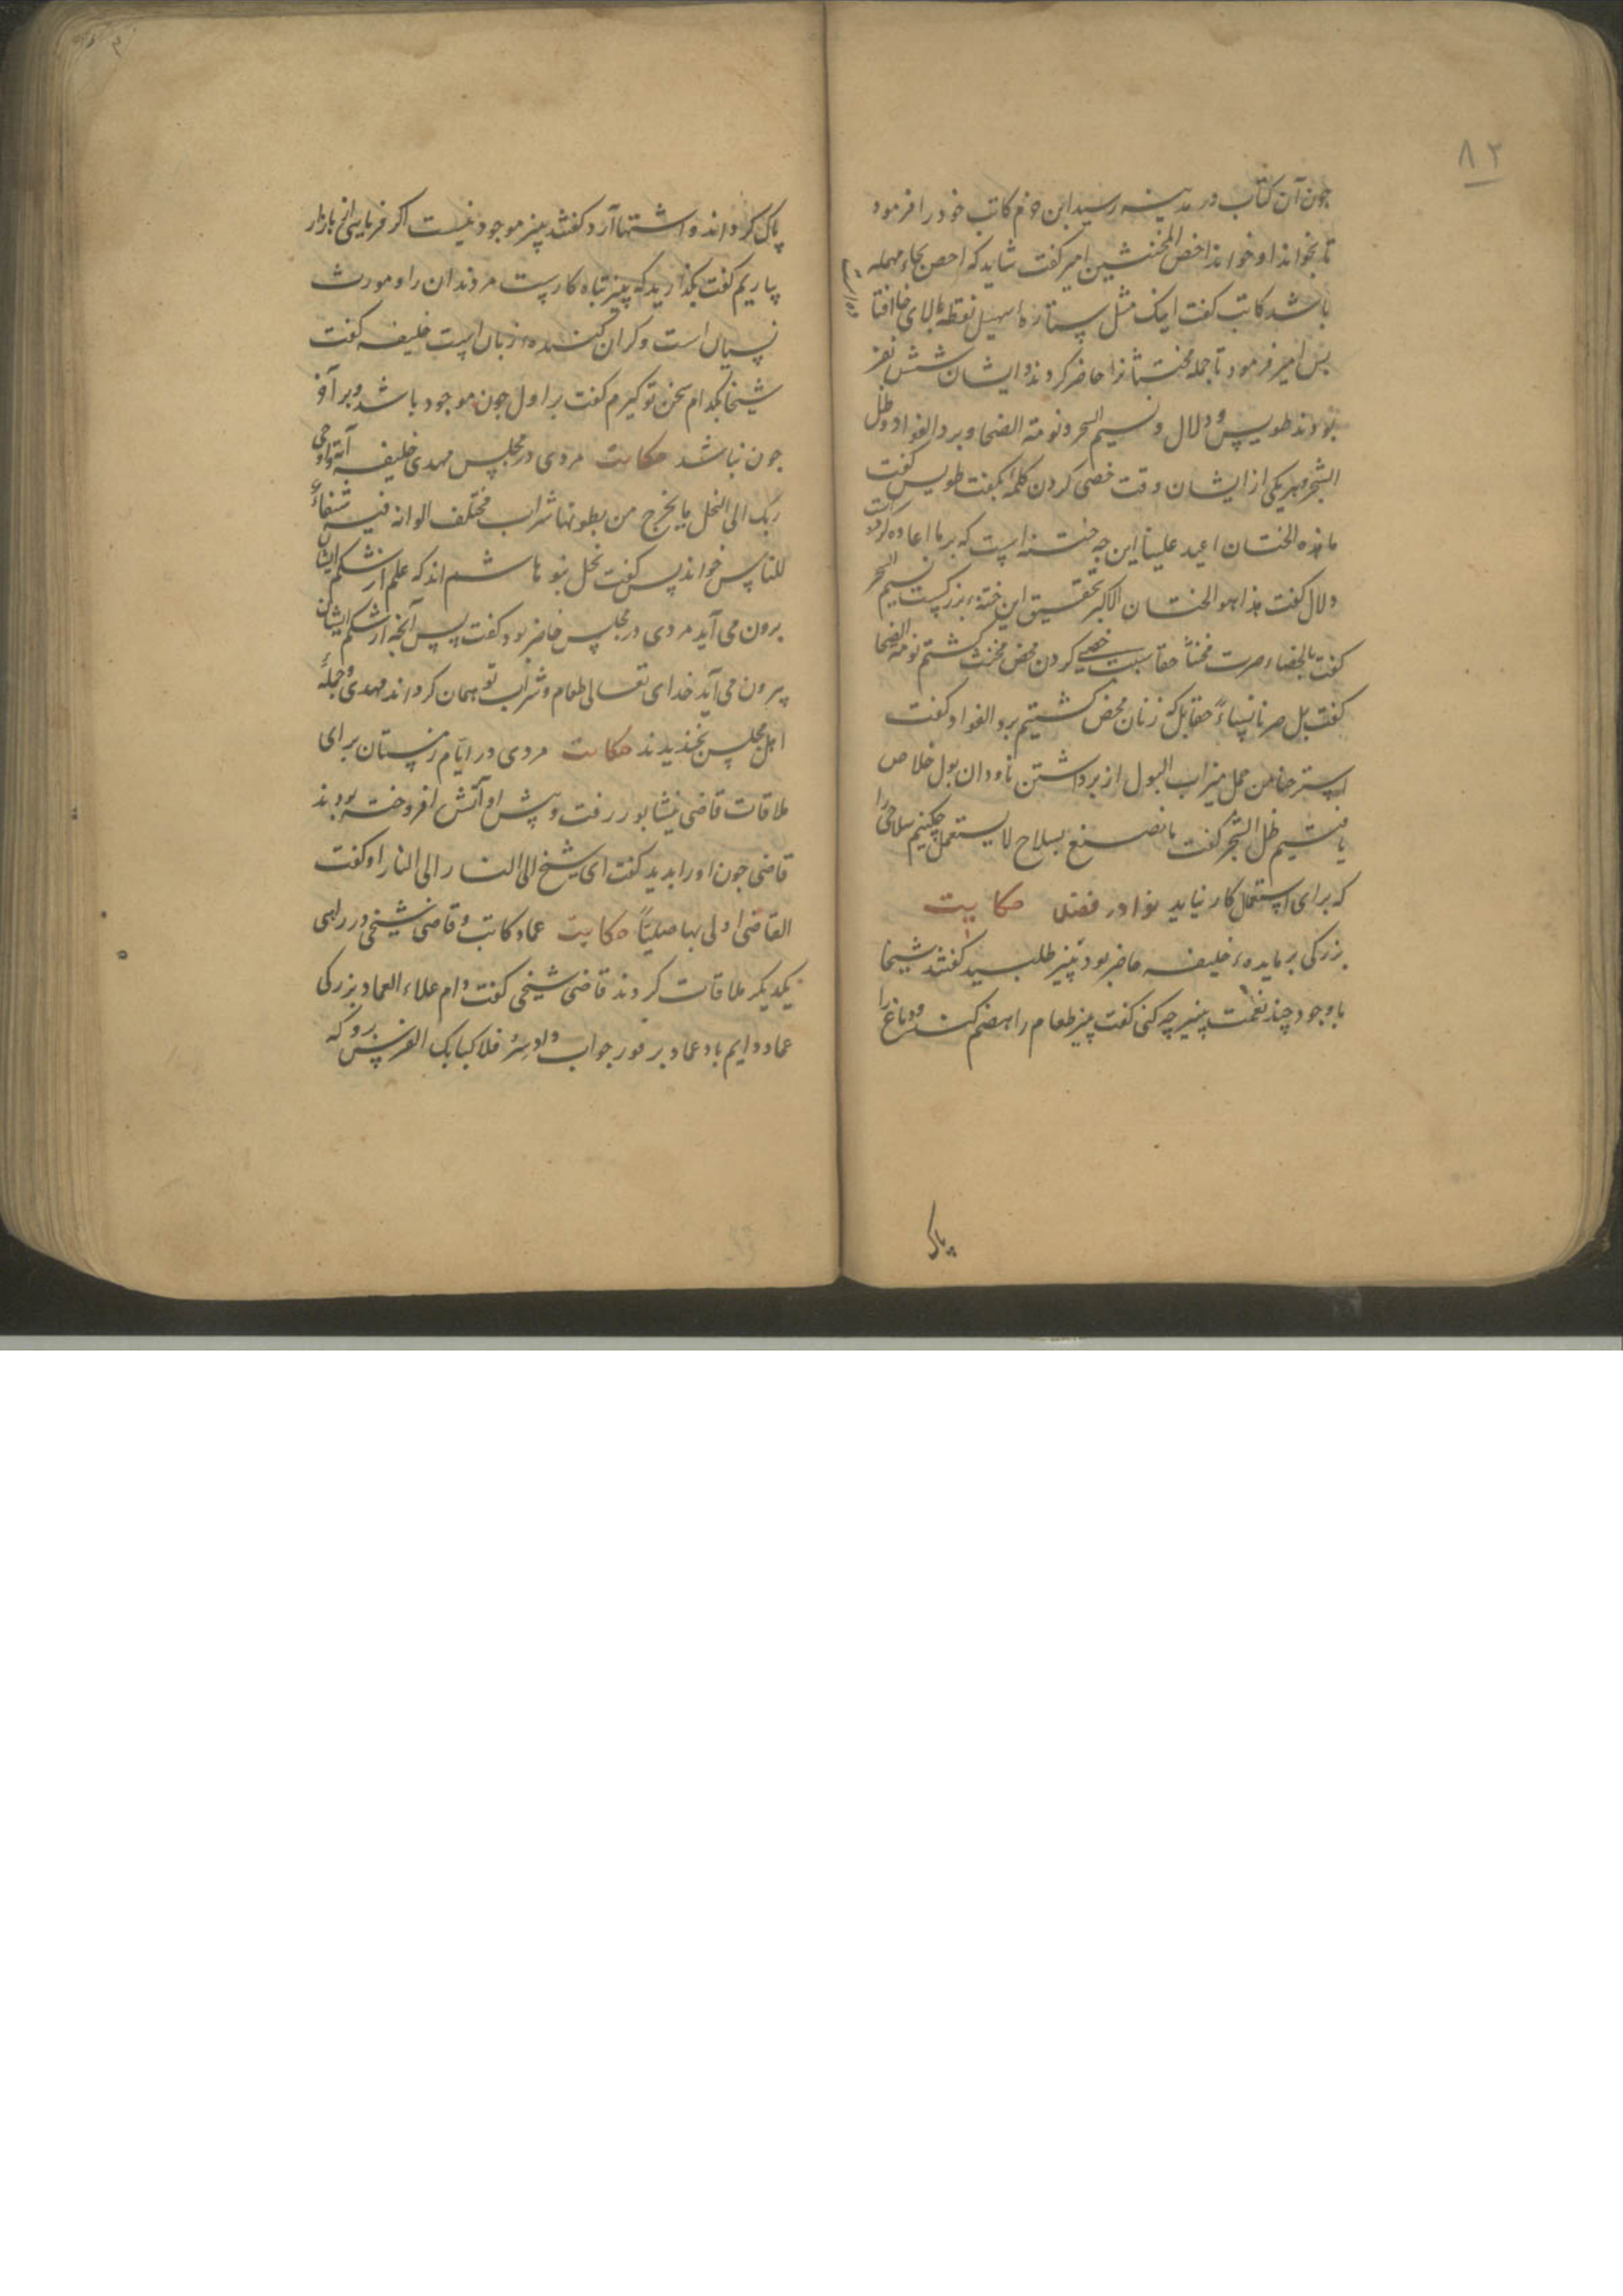 ۸۲
جون آن کتاب در مدینه رسید ابن حزم کاتب خود را فرمود
تا بخواند او خواند اخص المخنثین امیر کفت شاید که احص بحاء مهمله
باشد کاتب کفت اینک مثل ستاره سهیل نقطه بالای خا افتا
بس امیر فرمود تا جمله مخنثانرا حاضر کردند و ایشان شش نفر
بودند طویس و دلال و نسیم السحر و نومة الضحا و برد الفواد و ظل
الشجر و هر یکی از ایشان وقت خصی کردن کلمه بکفت طویس کفت
ما هذه الختان اعید علینا این چه ختنه است که بر ما اعاده کرده
دلال کفت هذا هو الختان الاکبر بتحقیق این ختنه بزرکست نسیم السحر
کفت بالخصاء صرت مخنثا حقا بسبب خصی کردن محض مخنث کشتم نومة الضحا
کفت بل صرنا نساءً حقا بل که زنان محض کشتیم برد الفواد کفت
استرحنا من حمل میزاب البول از برداشتن ناودان بول خلاص
یافتیم ظل الشجر کفت ما نصنع بسلاح لا یستعمل چکنیم سلاحی را
که برای استعمال کار نیاید نوادر حکایت
بزرکی بر مایده خلیفه حاضر بود پنیر طلبید کفتند شیخا
با وجود چند نعمت پنیر چه کنی کفت پنیر طعام را هضم کند و دماغ را
پاک
پاک کرداند و اشتها آرد کفتند پنیر موجود نیست اکر فرمایی از بازار
بیاریم کفت بکذارید که پنیر تباه کار ست مر دندان را و مورث
نسیان است و کران کننده زبان است خلیفه کفت
شیخا بکدام سخن تو کیرم کفت بر اول جون موجود باشد و بر آخر
جون نباشد حکایت مردی در مجلس مهدی خلیفه آیة و اوحی
ربک الی النحل یخرج من بطونها شراب مختلف الوانه فیه شفاءٌ
للناس خواند پس کفت نحل بنو هاشم اند که علم از شکم ایشان
برون می آید مردی در مجلس حاضر بود کفت پس آنچه از شکم ایشان
بیرون می آید خدای تعالی طعام و شراب تو همان کرداند مهدی و جمله
اهل مجلس بخندیدند حکایت مردی در ایام زمستان برای
ملاقات قاضی نیشابور رفت و پیش او آتش افروخته بودند
قاضی جون او را بدید کفت ای شیخ الی النار الی النار او کفت
القاضی اولی بها صلیّاً حکایت عماد کاتب و قاضی شیخی در راهی
یکدیکر ملاقات کردند قاضی شیخی کفت دام علاء العماد بزرکی
عماد دایم باد عماد بر فور جواب داد سِرْ فلا کبا بک الفرس برو که